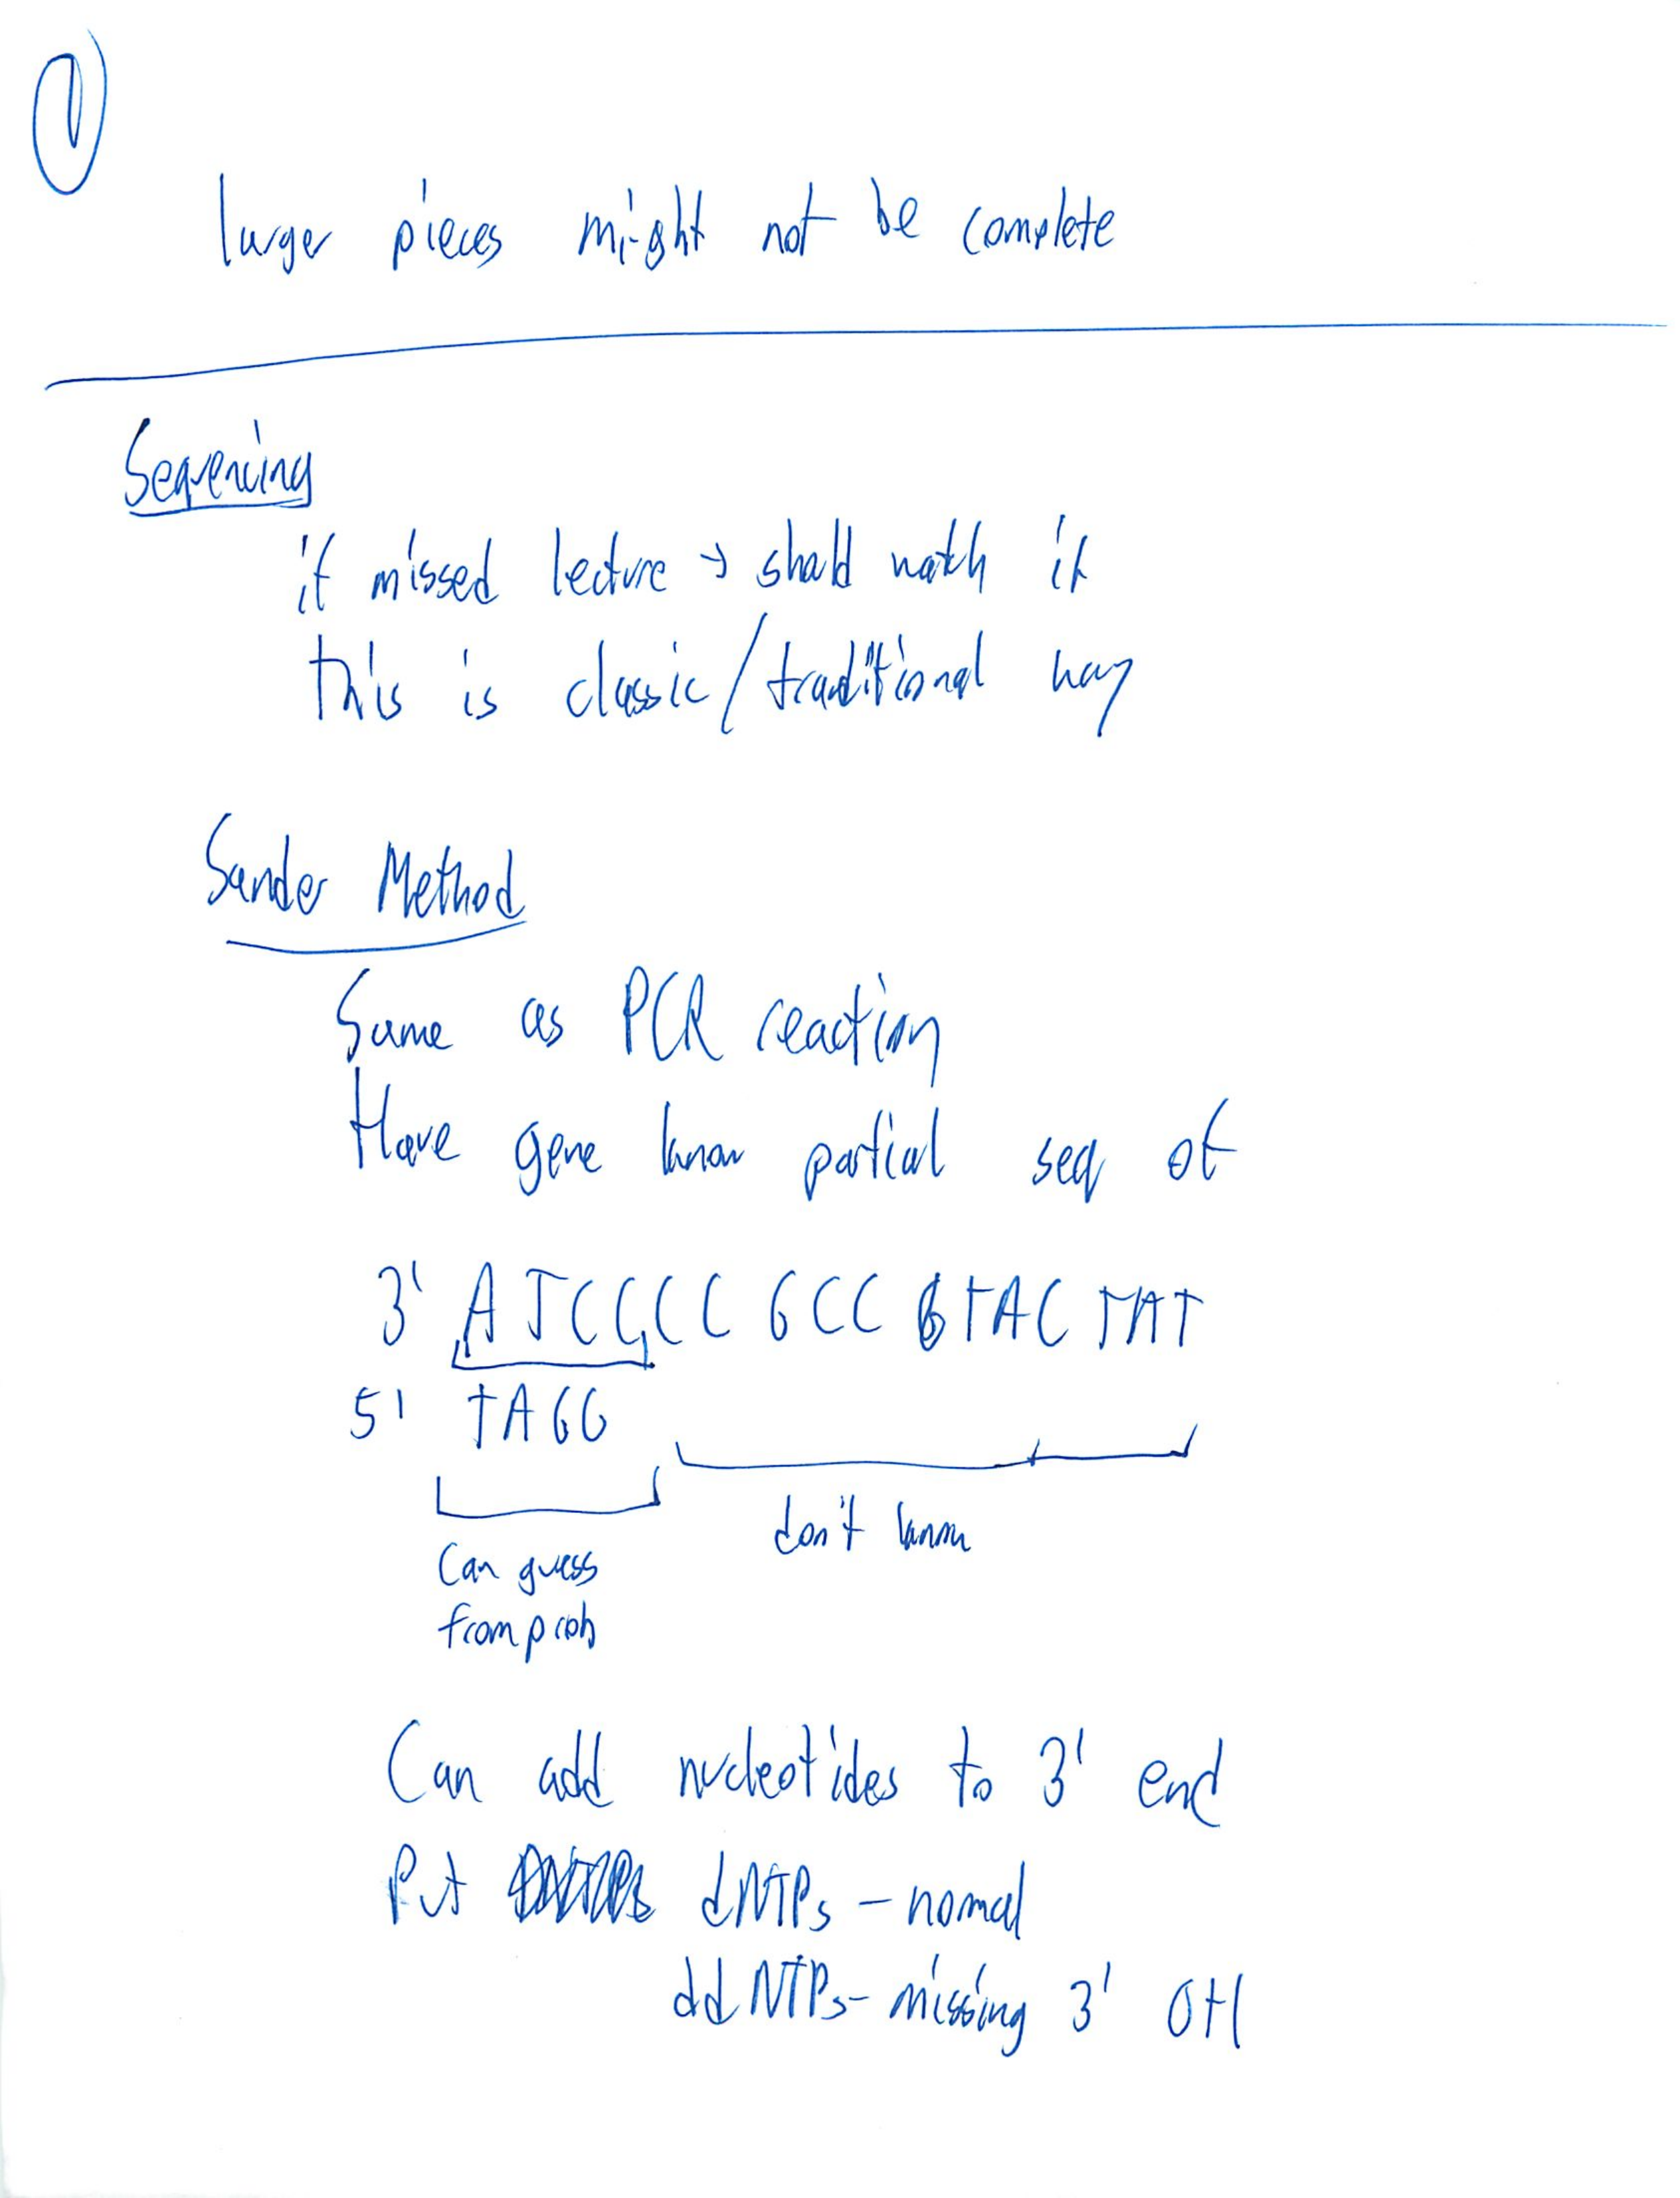 1
larger pieces might not be complete
Sequencing
if missed lecture → should watch it
this is classic/traditional way
Sander Method
Same as PCR reaction
Have gene know partial seq of
3' ATCCCC GCC GTAC TAT
5' TAGG
don't know
Can guess
from prob
Can add nucleotides to 3' end
Put dNTPs - normal
ddNTPs - missing 3' OH